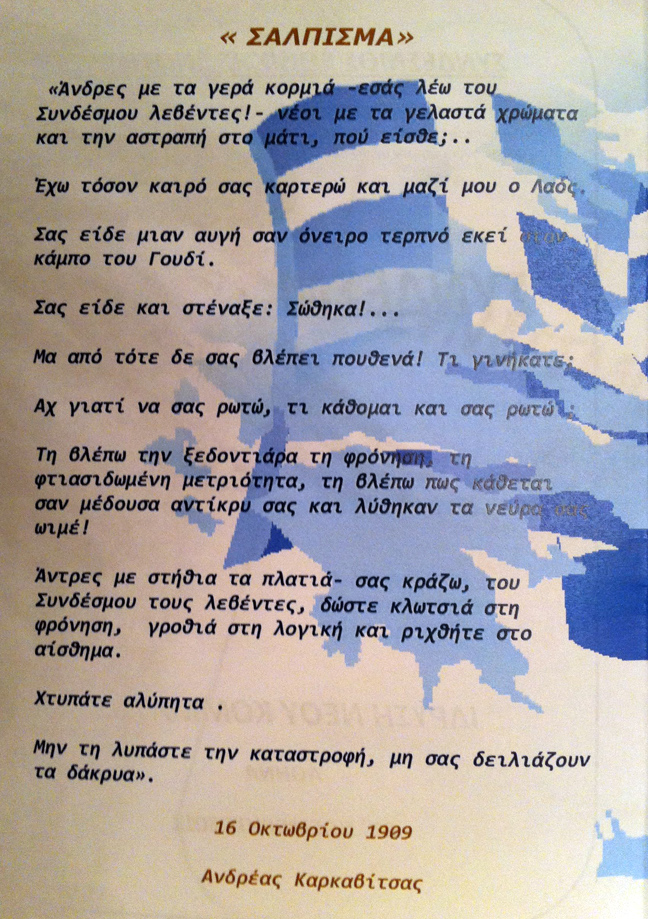 « ΣΑΛΠΙΣΜΑ»
«Άνδρες με τα γερά κορμιά -εσάς λέω του
Συνδέσμου λεβέντες!- νέοι με τα γελαστά χρώματα
και την αστραπή στο μάτι, πού είσθε;..
Έχω τόσον καιρό σας καρτερώ και μαζί μου ο Λαός.
Σας είδε μιαν αυγή σαν όνειρο τερπνό εκεί στον
κάμπο του Γουδί.
Σας είδε και στέναξε: Σώθηκα!...
Μα από τότε δε σας βλέπει πουθενά! Τι γινήκατε;
Αχ γιατί να σας ρωτώ, τι κάθομαι και σας ρωτώ ;
Τη βλέπω την ξεδοντιάρα τη φρόνηση, τη
φτιασιδωμένη μετριότητα, τη βλέπω πως κάθεται
σαν μέδουσα αντίκρυ σας και λύθηκαν τα νεύρα σας
ωιμέ!
Άντρες με στήθια τα πλατιά- σας κράζω, του
Συνδέσμου τους λεβέντες, δώστε κλωτσιά στη
φρόνηση, γροθιά στη λογική και ριχθήτε στο
αίσθημα.
Χτυπάτε αλύπητα .
Μην τη λυπάστε την καταστροφή, μη σας δειλιάζουν
τα δάκρυα».
16 Οκτωβρίου 1909
Ανδρέας Καρκαβίτσας